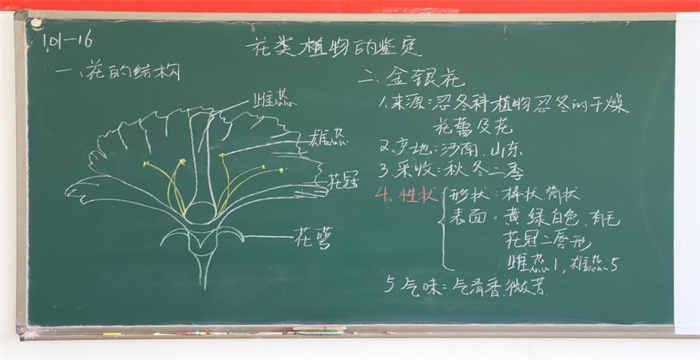 101-16
花类植物的鉴定
一、花的结构
雌蕊
雄蕊
花冠
花萼
二、金银花
1.来源:忍冬科植物忍冬的干燥
花蕾及花
2.产地:河南、山东
3.采收:秋冬二季
4.性状
形状:棒状筒状
表面:黄绿白色,有毛
花冠二唇形
雌蕊1,雄蕊5
5.气味:气清香,微苦